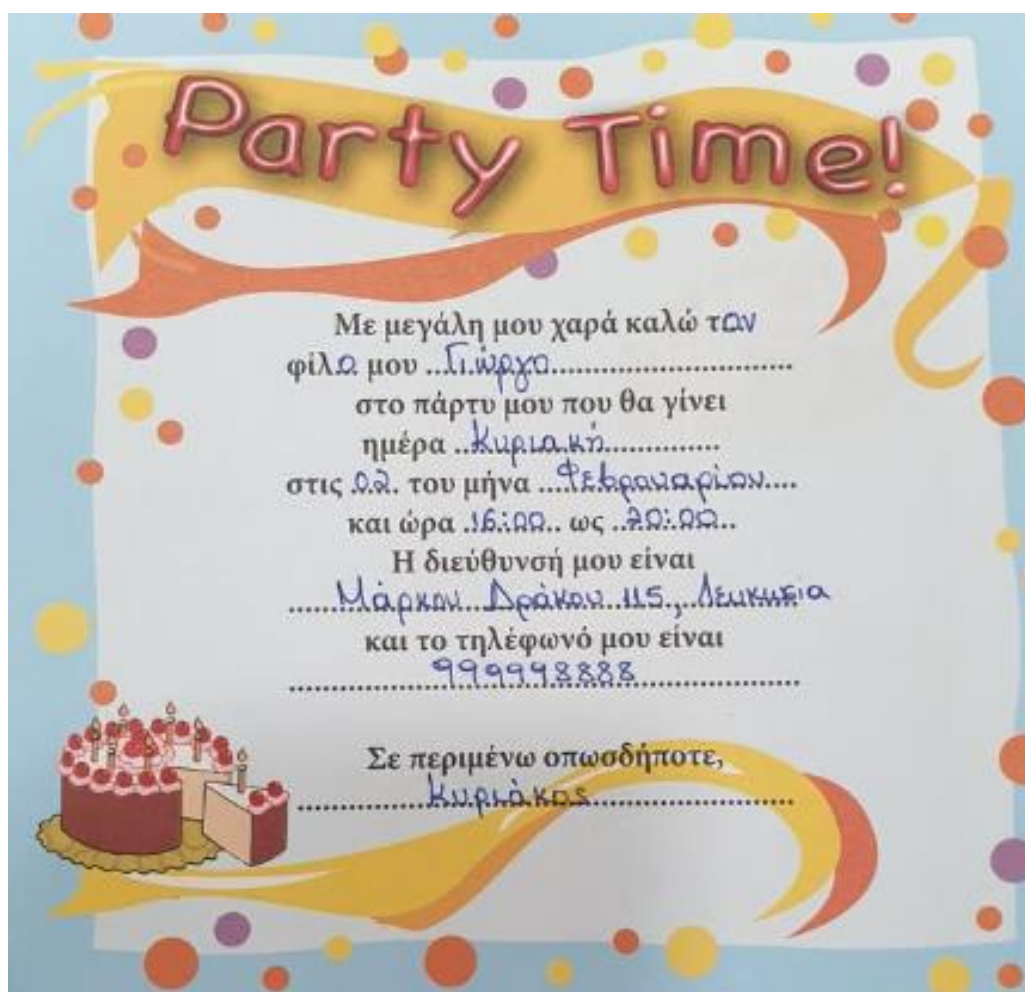 Party Time!
Με μεγάλη μου χαρά καλώ τον
φίλο μου ..Γιώργο..............................
στο πάρτυ μου που θα γίνει
ημέρα ..Κυριακή..............
στις .02. του μήνα ...Φεβρουαρίου....
και ώρα .16:00.. ως ..20:00..
Η διεύθυνσή μου είναι
.......Μάρκου Δράκου 115, Λευκωσία
και το τηλέφωνό μου είναι
....................999998888......................
Σε περιμένω οπωσδήποτε,
..................Κυριάκος............................